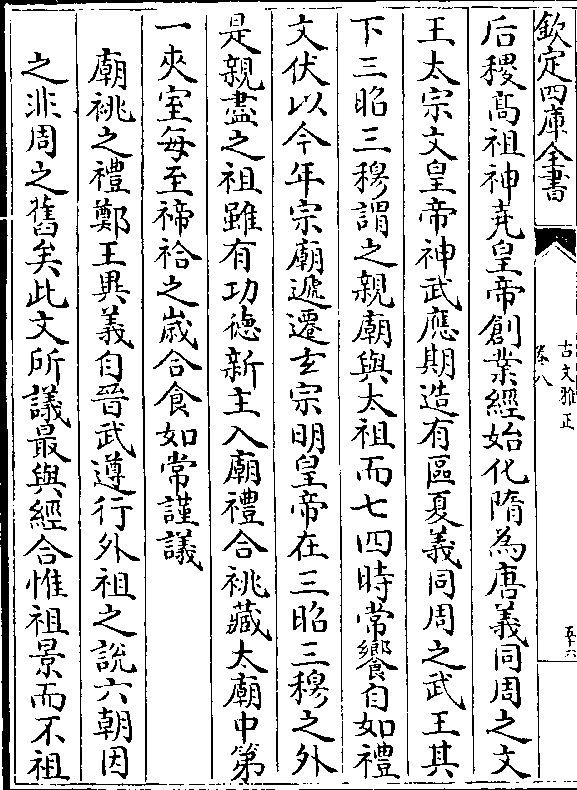 欽定四庫全書
古文雅正
卷八
五六
后稷髙祖神堯皇帝創業經始化隋為唐義同周之文
王太宗文皇帝神武應期造有區夏義同周之武王其
下三昭三穆謂之親廟與太祖而七四時常饗自如禮
文伏以今年宗廟遞遷玄宗明皇帝在三昭三穆之外
是親盡之祖雖有功徳新主入廟禮合祧藏太廟中第
一夾室每至禘祫之嵗合食如常謹議
廟祧之禮鄭王異義自晉武遵行外祖之説六朝因
之非周之舊矣此文所議最與經合惟祖景而不祖